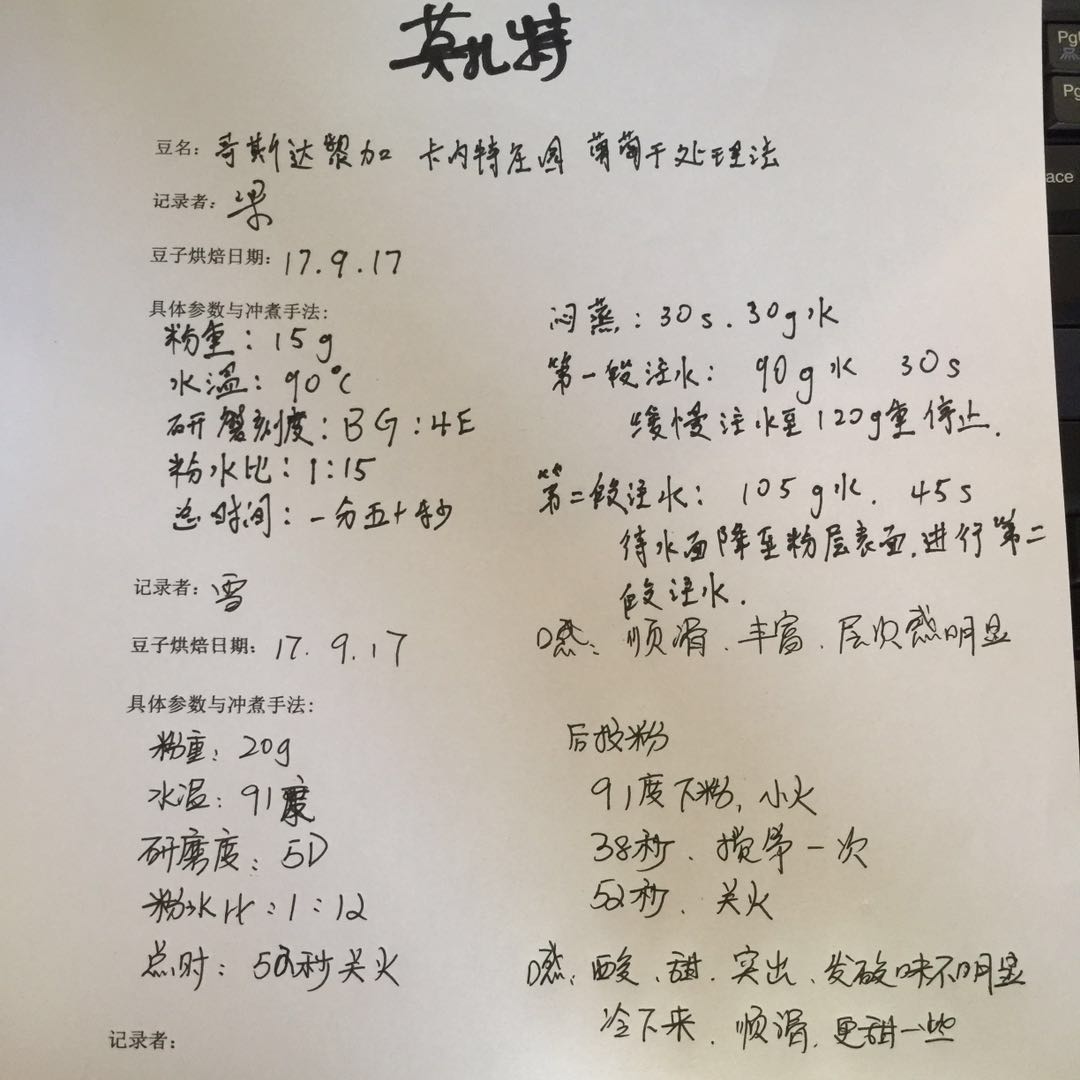 莫扎特
豆名: 哥斯达黎加 卡内特庄园 葡萄干处理法
记录者: 梁
豆子烘焙日期: 17.9.17
具体参数与冲煮手法:
粉重: 15g
水温: 90℃
研磨刻度: BG:4E
粉水比: 1:15
总时间: 一分五十秒
闷蒸: 30s. 30g水
第一段注水: 90g水 30s
缓慢注水至120g重停止.
第二段注水: 105g水. 45s
待水面降至粉层表面,进行第二
段注水.
口感: 顺滑、丰富、层次感明显
记录者: 雪
豆子烘焙日期: 17.9.17
具体参数与冲煮手法:
粉重: 20g
水温: 91度
研磨度: 5D
粉水比: 1:12
总时: 52秒关火
后投粉
91度下粉, 小火
38秒、搅拌一次
52秒、关火
口感: 酸、甜、突出、发酸味不明显
冷下来、顺滑, 更甜一些
记录者:
PgU
Pg
ace